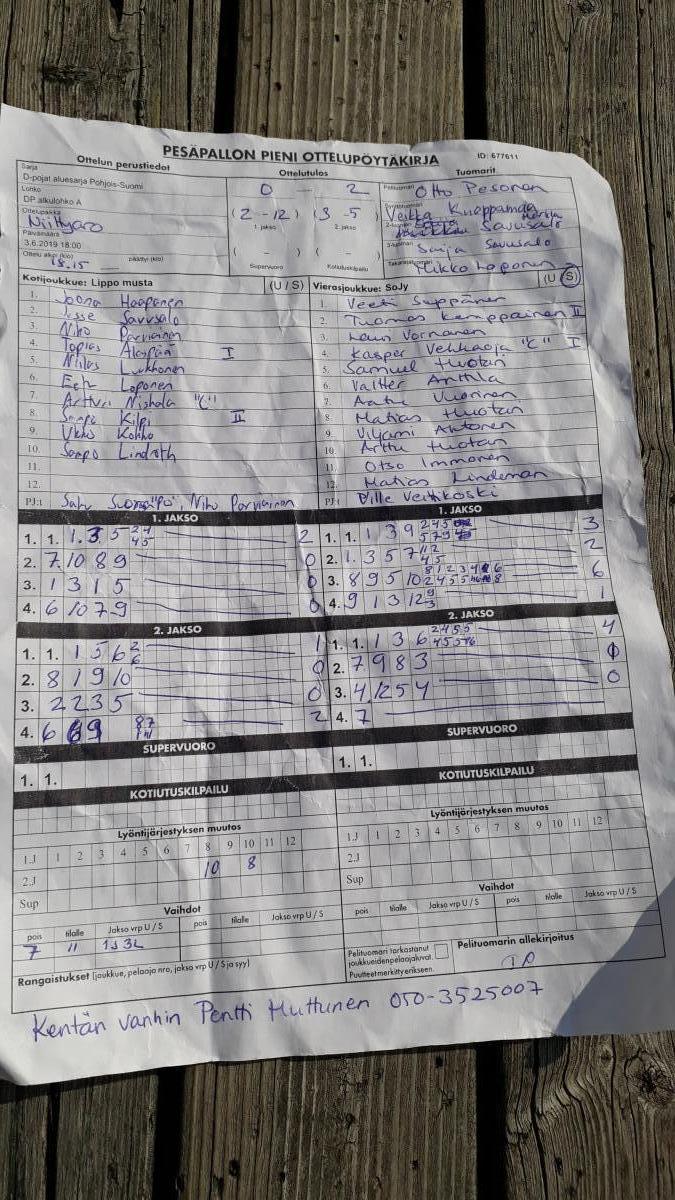 PESÄPALLON PIENI OTTELUPÖYTÄKIRJA ID: 677611
Ottelun perustiedot Ottelutulos Tuomarit
Sarja
D-pojat aluesarja Pohjois-Suomi
Lohko
DP alkulohko A
Ottelupaikka
Niittyaro
Päivämäärä
3.6.2019 18:00
Ottelu alkoi (klo) 18.15 päättyi (klo)
0 — 2
(2 - 12) (3 - 5)
1. jakso 2. jakso
( ) ( - )
Supervuoro Kotiutuskilpailu
Pelituomari Otto Pesonen
Veikka Knaapamäa
Savusalo
Saija Savusalo
Mikko Loponen
Kotijoukkue: Lippo musta (U / S)
1. Joona Haapanen
2. Jesse Savusalo
3. Niko Parviainen
4. Topias Alaspää I
5. Niilas Lukkonen
6. Eetu Loponen
7. Artturi Niskala "C"
8. Sampo Kilpi II
9. Ukko Kohko
10. Sampo Lindroth
11.
12.
PJ:t Niko Parviainen
Vierasjoukkue: SoJy (U / S)
1. Veeti Suppänen
2. Tuomas Kemppainen II
3. Leun Vornanen
4. Kasper Vehkaoja "C" I
5. Samuel Huotari
6. Valtter Anttila
7. Aatu Vuorinen
8. Matias Huotari
9. Viljami Ahtonen
10. Arttu Huotari
11. Otso Immonen
12. Matias Lindeman
PJ:t Ville Veitikoski
1. JAKSO
1. 1. 1.35 24 45 2
2. 7 10 8 9 0
3. 1 3 1 5 0
4. 6 10 7 9 0
1. JAKSO
1. 1. 1 3 9 245 579 3
2. 1.3 5 7 112 45 2
3. 8 9 5 10 6
4. 9 1 3 12 9 3 1
2. JAKSO
1. 1. 1 5 6 2 6 1
2. 8 1 9 10 0
3. 2 2 3 5 0
4. 6 9 87 2
2. JAKSO
1. 1. 1 3 6 2455 4
2. 7 9 8 3 0
3. 4.1254 0
4. 7
SUPERVUORO
1. 1.
SUPERVUORO
1. 1.
KOTIUTUSKILPAILU
KOTIUTUSKILPAILU
Lyöntijärjestyksen muutos
1.J 1 2 3 4 5 6 7 8 9 10 11 12
2.J 10 8
Sup
Lyöntijärjestyksen muutos
1.J 1 2 3 4 5 6 7 8 9 10 11 12
2.J
Sup
Vaihdot
pois tilalle Jakso vrp U / S pois tilalle Jakso vrp U / S
7 11 1J3L
Vaihdot
pois tilalle Jakso vrp U / S pois tilalle Jakso vrp U / S
Rangaistukset (joukkue, pelaaja nro, jakso vrp U / S ja syy)
Pelituomari tarkastanut
joukkueiden pelaajaluvat.
Puutteet merkitty erikseen.
Pelituomarin allekirjoitus
Kentän vanhin Pentti Huttunen 050-3525007